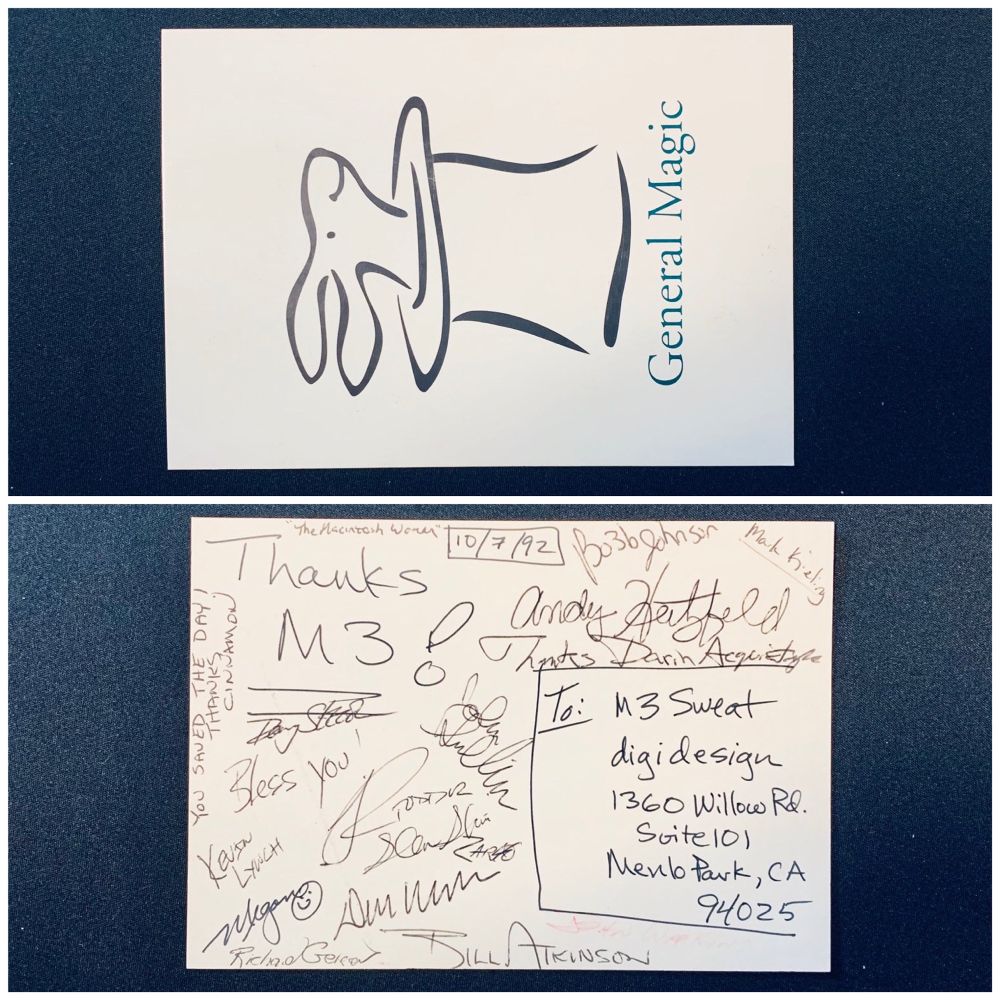 General Magic
"The Macintosh Woman"
10/7/92
Bo3b Johnson
Mark
Thanks
M3!
Andy Hertzfeld
Darin
YOU SAVED THE DAY!
THANKS,
CINNAMON
To: M3 Sweat
digidesign
1360 Willow Rd.
Suite 101
Menlo Park, CA
94025
Bless you!
John
KEVIN
LYNCH
Megan
Richard
BILL ATKINSON